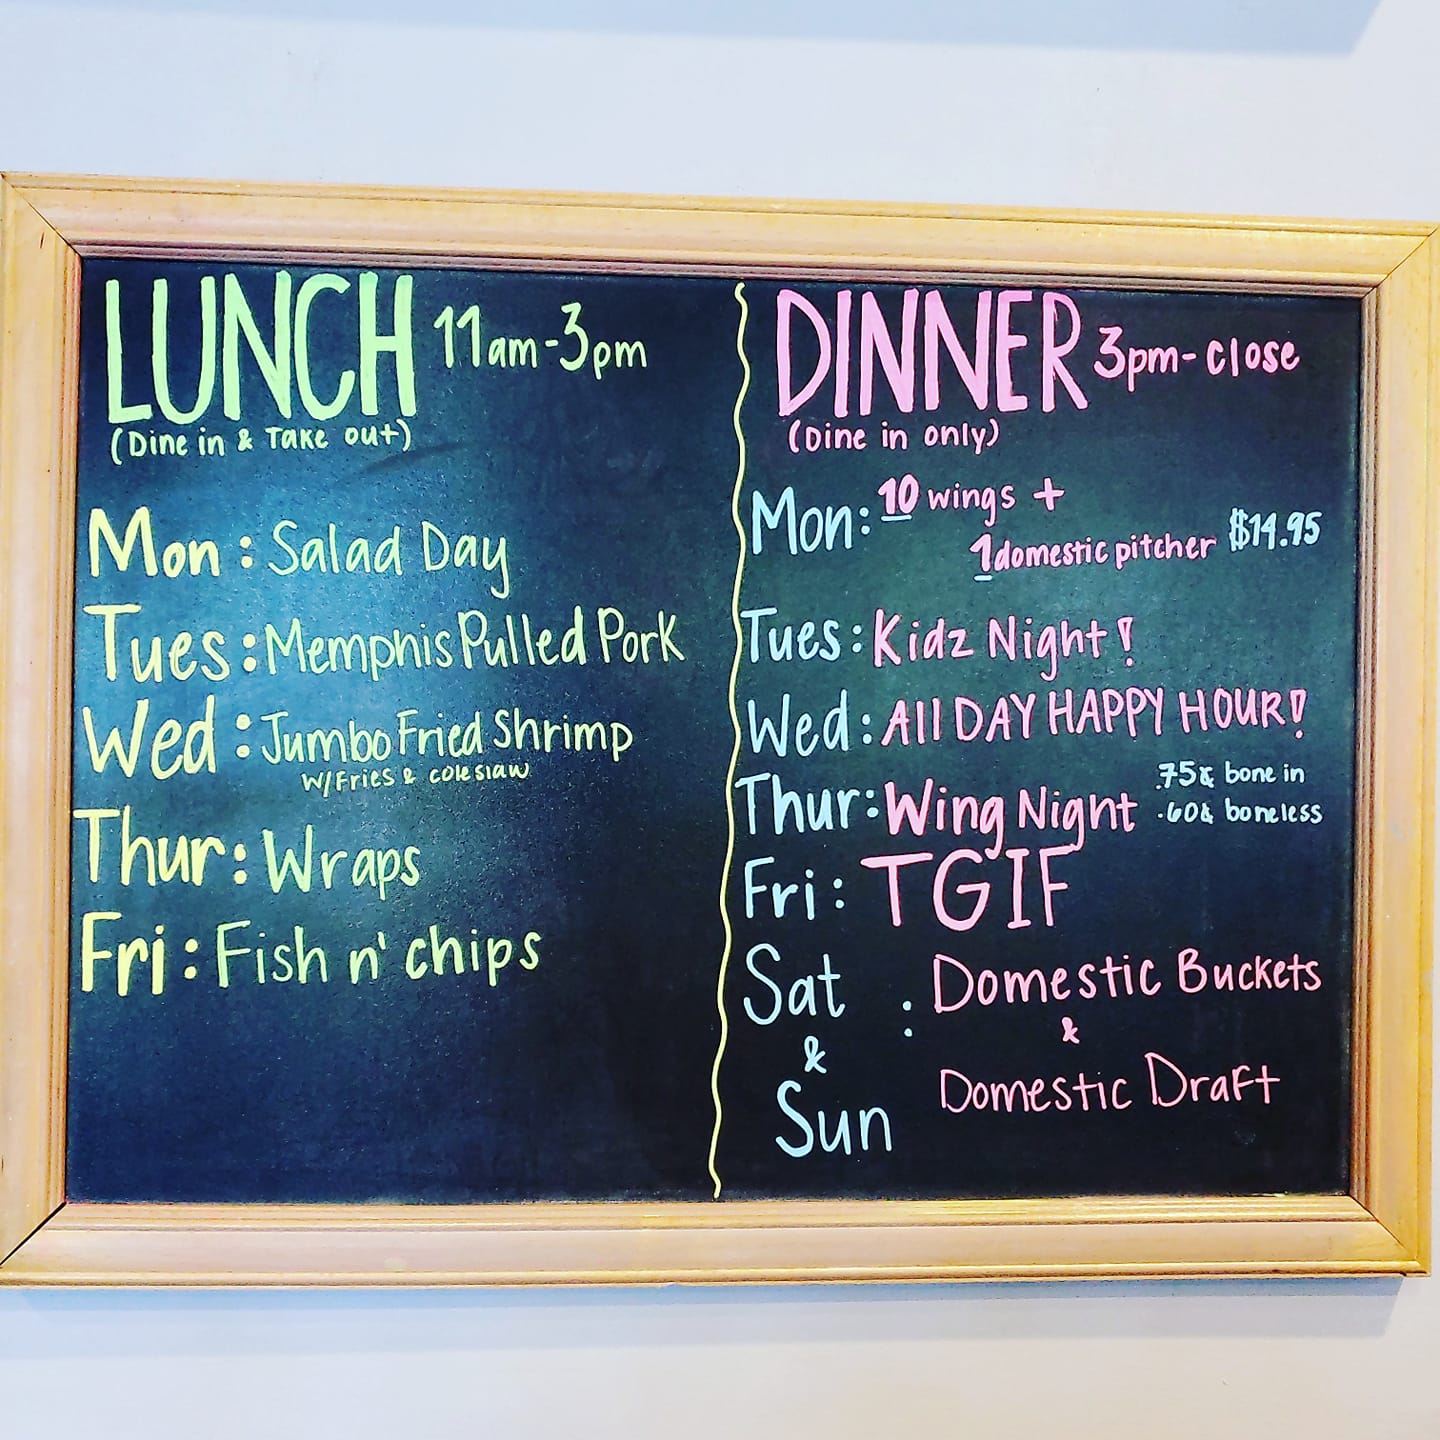 LUNCH 11am-3pm
(Dine in & Take out)
Mon: Salad Day
Tues: Memphis Pulled Pork
Wed: Jumbo Fried Shrimp
W/Fries & coleslaw
Thur: Wraps
Fri: Fish n' chips
DINNER 3pm-close
(Dine in only)
Mon: 10 wings +
1 domestic pitcher $14.95
Tues: Kidz Night!
Wed: All DAY HAPPY HOUR!
Thur: Wing Night
.75¢ bone in
.60¢ boneless
Fri: TGIF
Sat
&
Sun
: Domestic Buckets
&
Domestic Draft